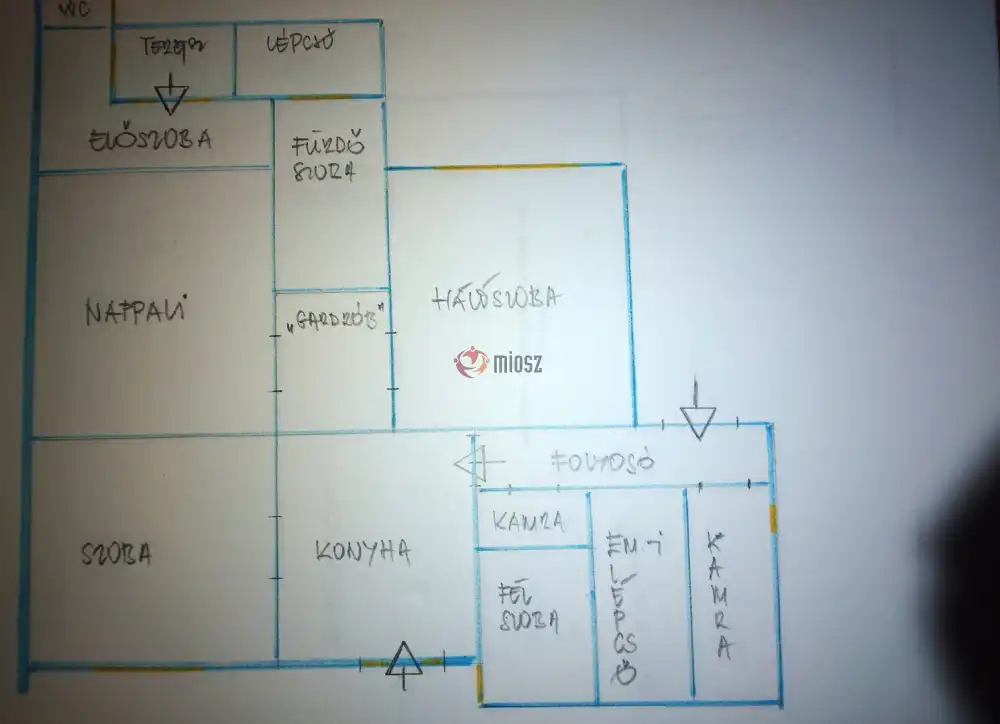 WC
TERASZ
LÉPCSŐ
ELŐSZOBA
FÜRDŐ
SZOBA
NAPPALI
„GARDRÓB"
HÁLÓSZOBA
miosz
FOLYOSÓ
SZOBA
KONYHA
KAMRA
FÉL
SZOBA
EM-I
LÉPCSŐ
KAMRA